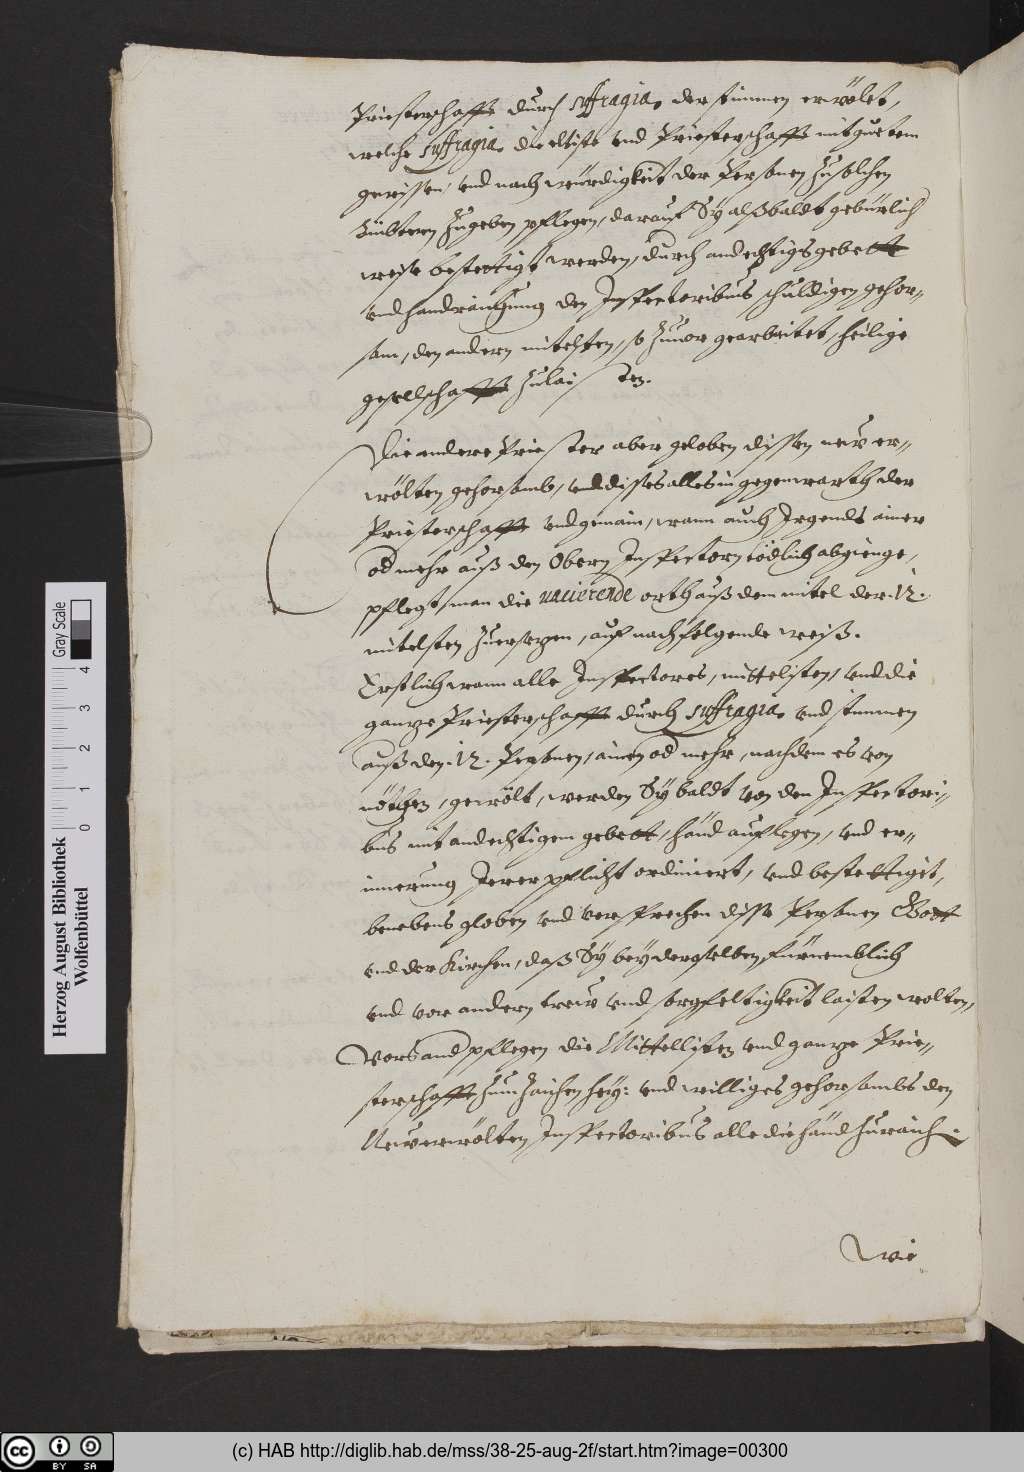 Priesterschafft durch suffragia, der stimmen erwölet,
welche suffragia, die eltiste vnd Priesterschafft mit guetem
gewissen, vnd nach würdigkeit der Personen zu solchen
Ämbtern zugeben pflegen, darauf Sÿ alßbaldt gebürlich
weise bestettigt werden, durch andechtigs gebett
vnd handraichung den Inspectoribus schuldigen gehor-
sam, den andern mitelsten, so zuuor gearbeitet, heilige
gesellschafft zulaisten.
Die andere Priester aber geloben dissen new er-
wölten gehorsamb, vnd disses alles in gegenwarth der
Priesterschafft vnd gemain, wann auch Irgends ainer
od mehr auß den Obern Inspectorn tödlich abgienge,
pflegt man die vacierende orth auß dem mitel der .12.
mitelsten zuersezen, auf nachfolgende weiß.
Erstlich wann alle Inspectores, mittelisten, vnd die
ganze Priesterschafft durch suffragia, vnd stimmen
auß den .12. Personen, ainen od mehr, nachdem es von
nöthen, gewölt, werden Sÿ baldt von den Inspectori-
bus mit andechtigem gebett, händ auflegen, vnd er-
innerung Irer pflicht ordiniert, vnd bestettiget,
benebens globen vnd versprechen disse Personen Gott
vnd der Kirchen, daß Sÿ beÿ derselben fürnemblich
vnd vor andern trew vnd sorgfeltigkeit laisten wolten,
Vors and pflegen die Mittelisten vnd ganze Prie-
sterschafft zum zaichen heÿ: vnd williges gehorsambs den
Newerwölten Inspectoribus alle die händ zuraich.
Wie
Herzog August Bibliothek
Wolfenbüttel
0 1 2 3 4
Gray Scale
(c) HAB http://diglib.hab.de/mss/38-25-aug-2f/start.htm?image=00300
cc BY SA